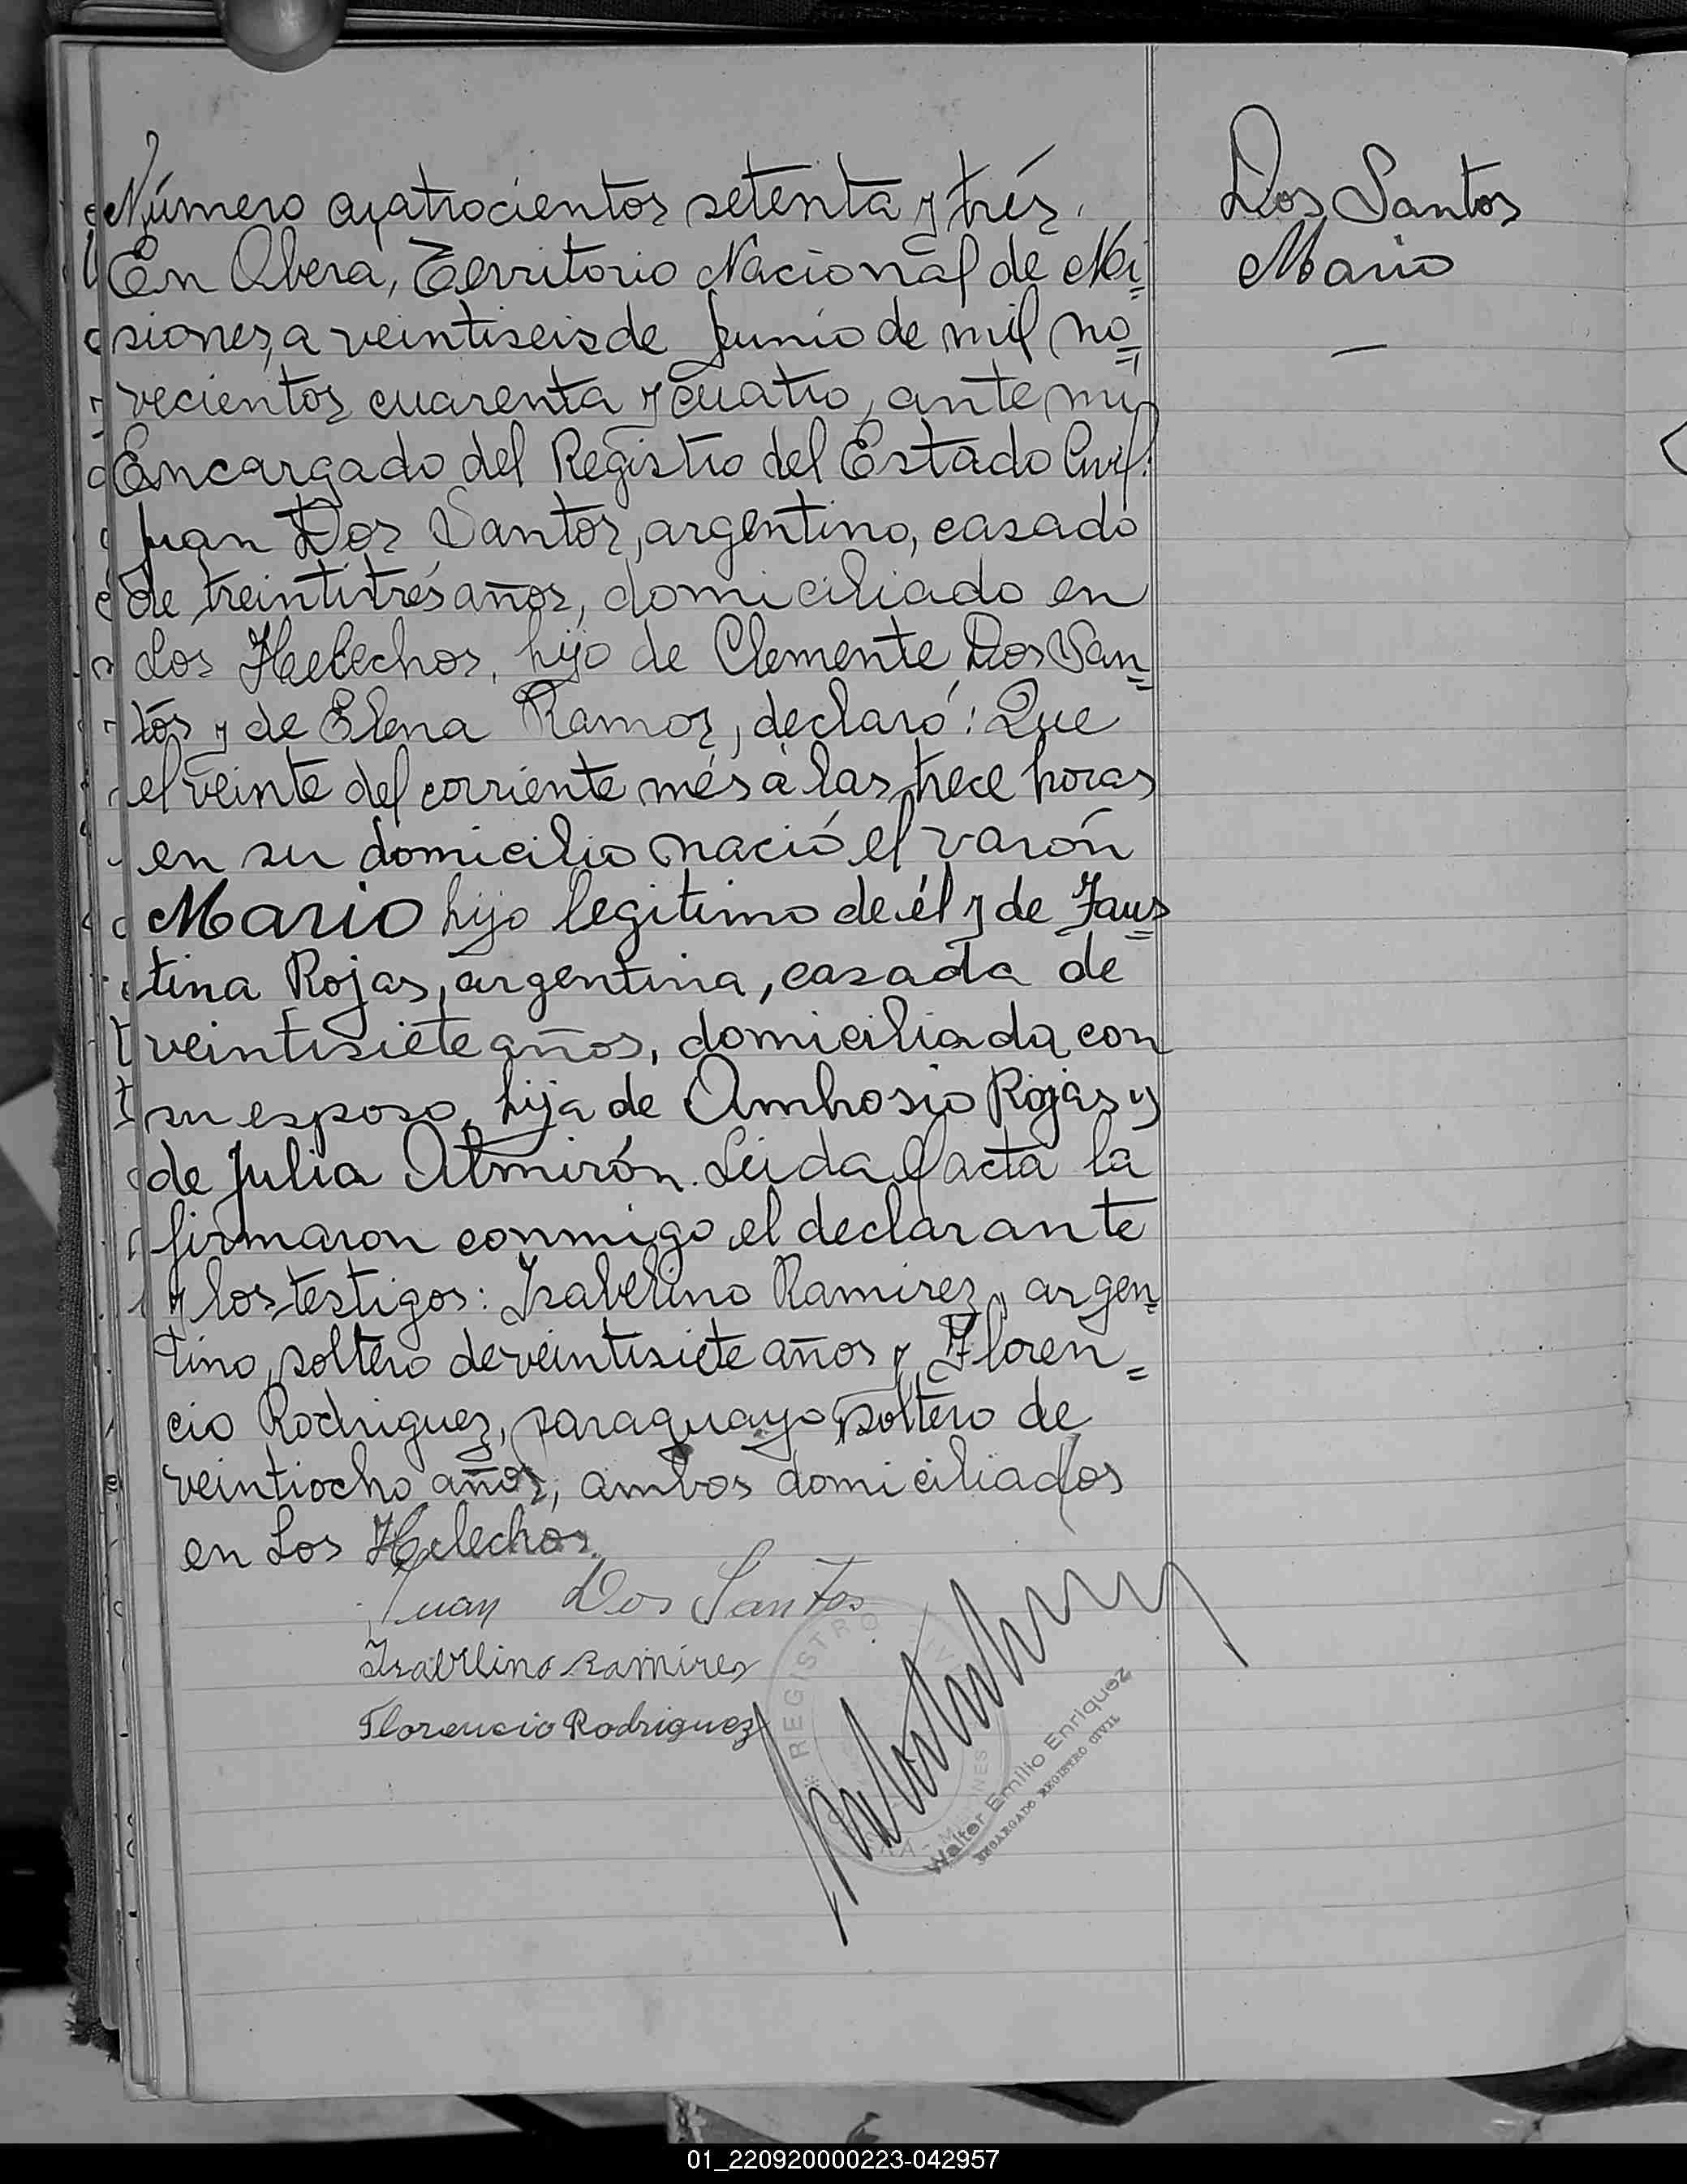 Número cuatrocientos setenta y trés.
Dos Santos
En Obera, Territorio Nacional de Mi=
Mario
siones, a veintiseis de Junio de mil no=
vecientos cuarenta y cuatro, ante mi
Encargado del Registro del Estado Civil:
Juan Dos Santos, argentino, casado
de treintitrés años, domiciliado en
Los Helechos, hijo de Clemente Dos San=
tos y de Elena Ramos, declaró: Que
el veinte del corriente més a las trece horas
en su domicilio nació el varón
Mario hijo legitimo de él y de Faus=
tina Rojas, argentina, casada de
veintisiete años, domiciliada con
su esposo, hija de Ambrosio Rojas y
de Julia Almirón. Leida el acta la
firmaron conmigo el declarante
y los testigos: Isabelino Ramirez, argen=
tino, soltero de veintisiete años y Floren=
cio Rodriguez, paraguayo, soltero de
veintiocho años, ambos domiciliados
en Los Helechos.
Juan Dos Santos
Isabelino Ramires
Florencio Rodriguez
REGISTRO
MISIONES
Walter Emilio Enriquez
ENCARGADO REGISTRO CIVIL
01_220920000223-042957